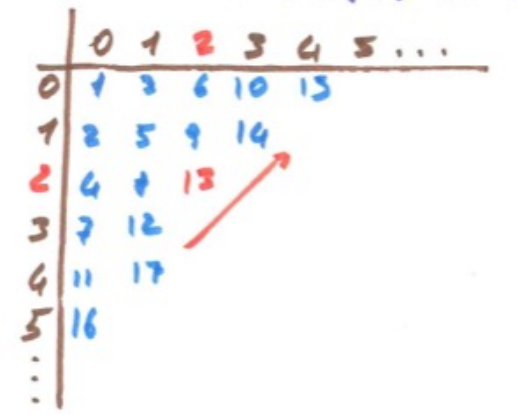 0 1 2 3 4 5 ...
0 1 3 6 10 15
1 2 5 9 14
2 4 8 13
3 7 12
4 11 17
5 16